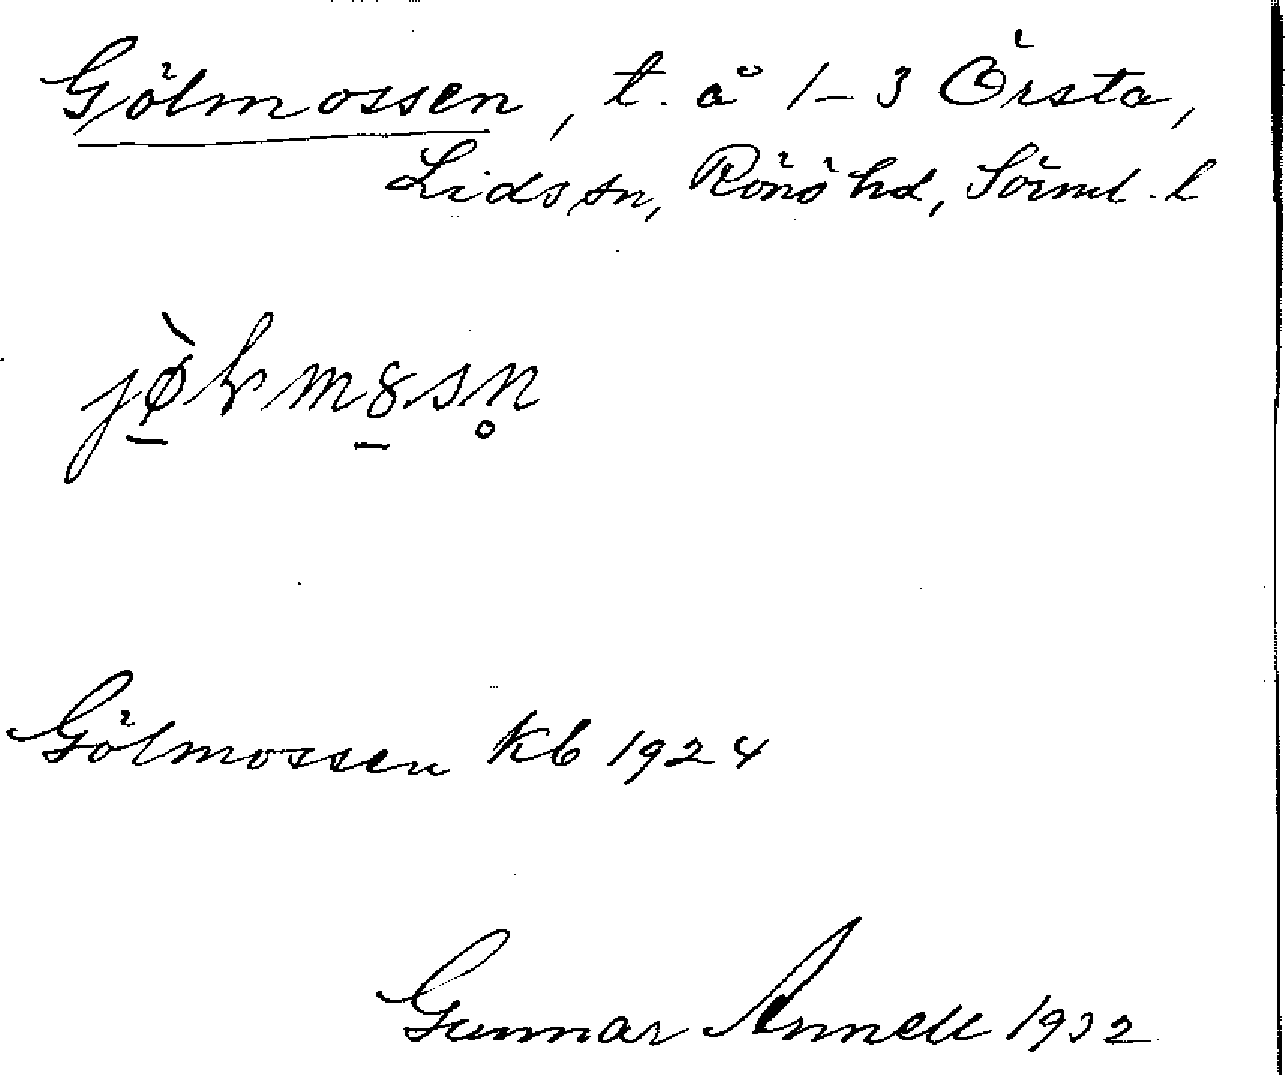 Gölmossen, t. å 1–3 Örsta,
Lids sn, Rönö hd, Söml. l
Gölmossen kb 1924
Gunnar Annell 1932